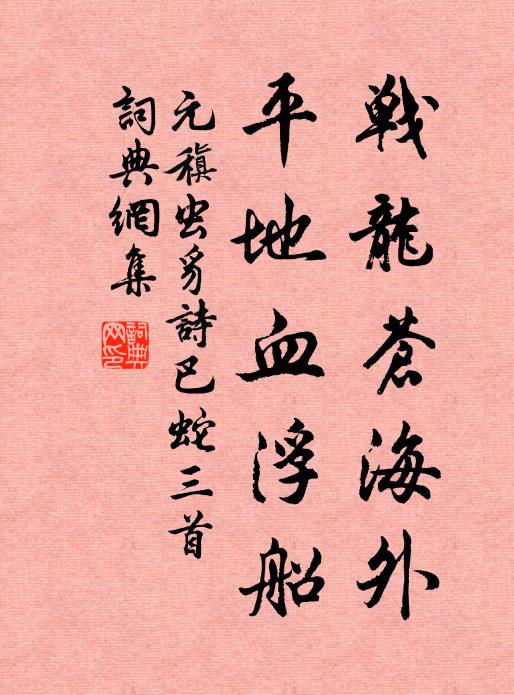 戰龍蒼海外
平地血浮船
元稹虫豸詩巴蛇三首
詞典網集
詞典網印